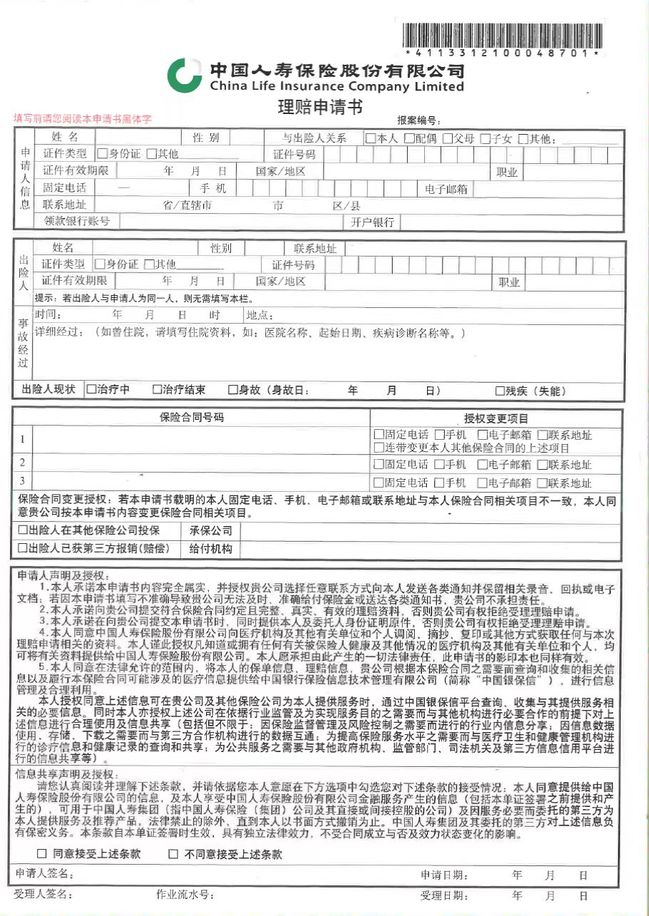 *4113312100048701*
中国人寿保险股份有限公司
China Life Insurance Company Limited
理赔申请书
填写前请您阅读本申请书黑体字
报案编号:
申请人信息
姓名 性别 与出险人关系 □本人 □配偶 □父母 □子女 □其他:
证件类型 □身份证 □其他 证件号码
证件有效期限 年 月 日 国家/地区 职业
固定电话 — 手机 电子邮箱
联系地址 省/直辖市 市 区/县
领款银行账号 开户银行
出险人
姓名 性别 联系地址
证件类型 □身份证 □其他 证件号码
证件有效期限 年 月 日 国家/地区 职业
提示:若出险人与申请人为同一人,则无需填写本栏。
事故经过
时间: 年 月 日 时 地点:
详细经过:(如曾住院,请填写住院资料,如:医院名称、起始日期、疾病诊断名称等。)
出险人现状 □治疗中 □治疗结束 □身故(身故日: 年 月 日) □残疾(失能)
保险合同号码 授权变更项目
1 □固定电话 □手机 □电子邮箱 □联系地址
□连带变更本人其他保险合同的上述项目
2 □固定电话 □手机 □电子邮箱 □联系地址
3 □固定电话 □手机 □电子邮箱 □联系地址
保险合同变更授权:若本申请书载明的本人固定电话、手机、电子邮箱或联系地址与本人保险合同相关项目不一致,本人同
意贵公司按本申请书内容变更保险合同相关项目。
□出险人在其他保险公司投保 承保公司
□出险人已获第三方报销(赔偿) 给付机构
申请人声明及授权:
1.本人承诺本申请书内容完全属实,并授权贵公司选择任意联系方式向本人发送各类通知并保留相关录音、回执或电子
文档;若因本申请书填写不准确导致贵公司无法及时、准确给付保险金或送达各类通知书,贵公司不承担责任。
2.本人承诺向贵公司提交符合保险合同约定且完整、真实、有效的理赔资料,否则贵公司有权拒绝受理理赔申请。
3.本人承诺在向贵公司提交本申请书时,同时提供本人及委托人身份证明原件,否则贵公司有权拒绝受理理赔申请。
4.本人同意中国人寿保险股份有限公司向医疗机构及其他有关单位和个人调阅、摘抄、复印或其他方式获取任何与本次
理赔申请相关的资料。本人谨此授权凡知道或拥有任何有关被保险人健康及其他情况的医疗机构及其他有关单位和个人,均
可将有关资料提供给中国人寿保险股份有限公司。本人愿承担由此产生的一切法律责任,此申请书的影印本也同样有效。
5.本人同意在法律允许的范围内,将本人的保单信息、理赔信息、贵公司根据本保险合同之需要而查询和收集的相关信
息以及履行本保险合同可能涉及的医疗信息提供给中国银行保险信息技术管理有限公司(简称“中国银保信”),进行信息
管理及合理利用。
本人授权同意上述信息可在贵公司及其他保险公司为本人提供服务时,通过中国银保信平台查询、收集与其提供服务相
关的必要信息,同时本人亦授权上述公司在依据行业监管及为实现服务目的之需要而与其他机构进行必要合作的前提下对上
述信息进行合理使用及信息共享(包括但不限于:因保险监督管理及风险控制之需要而进行的行业内信息分享;因信息数据
使用、存储、下载之需要而与第三方合作机构进行的数据互通;为提高保险服务水平之需要而与医疗卫生和健康管理机构进
行的诊疗信息和健康记录的查询和共享;为公共服务之需要与其他政府机构、监管部门、司法机关及第三方信息信用平台进
行的信息共享等)。
信息共享声明及授权:
请您认真阅读并理解下述条款,并请依据您本人意愿在下方选项中勾选您对下述条款的接受情况:本人同意提供给中国
人寿保险股份有限公司的信息,及本人享受中国人寿保险股份有限公司金融服务产生的信息(包括本单证签署之前提供和产
生的),可用于中国人寿集团(指中国人寿保险(集团)公司及其直接或间接控股的公司)及因服务必要而委托的第三方为
本人提供服务及推荐产品,法律禁止的除外,直到本人以书面方式撤销为止。中国人寿集团及其委托的第三方对上述信息负
有保密义务。本条款自本单证签署时生效,具有独立法律效力,不受合同成立与否及效力状态变化的影响。
□ 同意接受上述条款 □ 不同意接受上述条款
申请人签名: 申请日期: 年 月 日
受理人签名: 作业流水号: 受理日期: 年 月 日